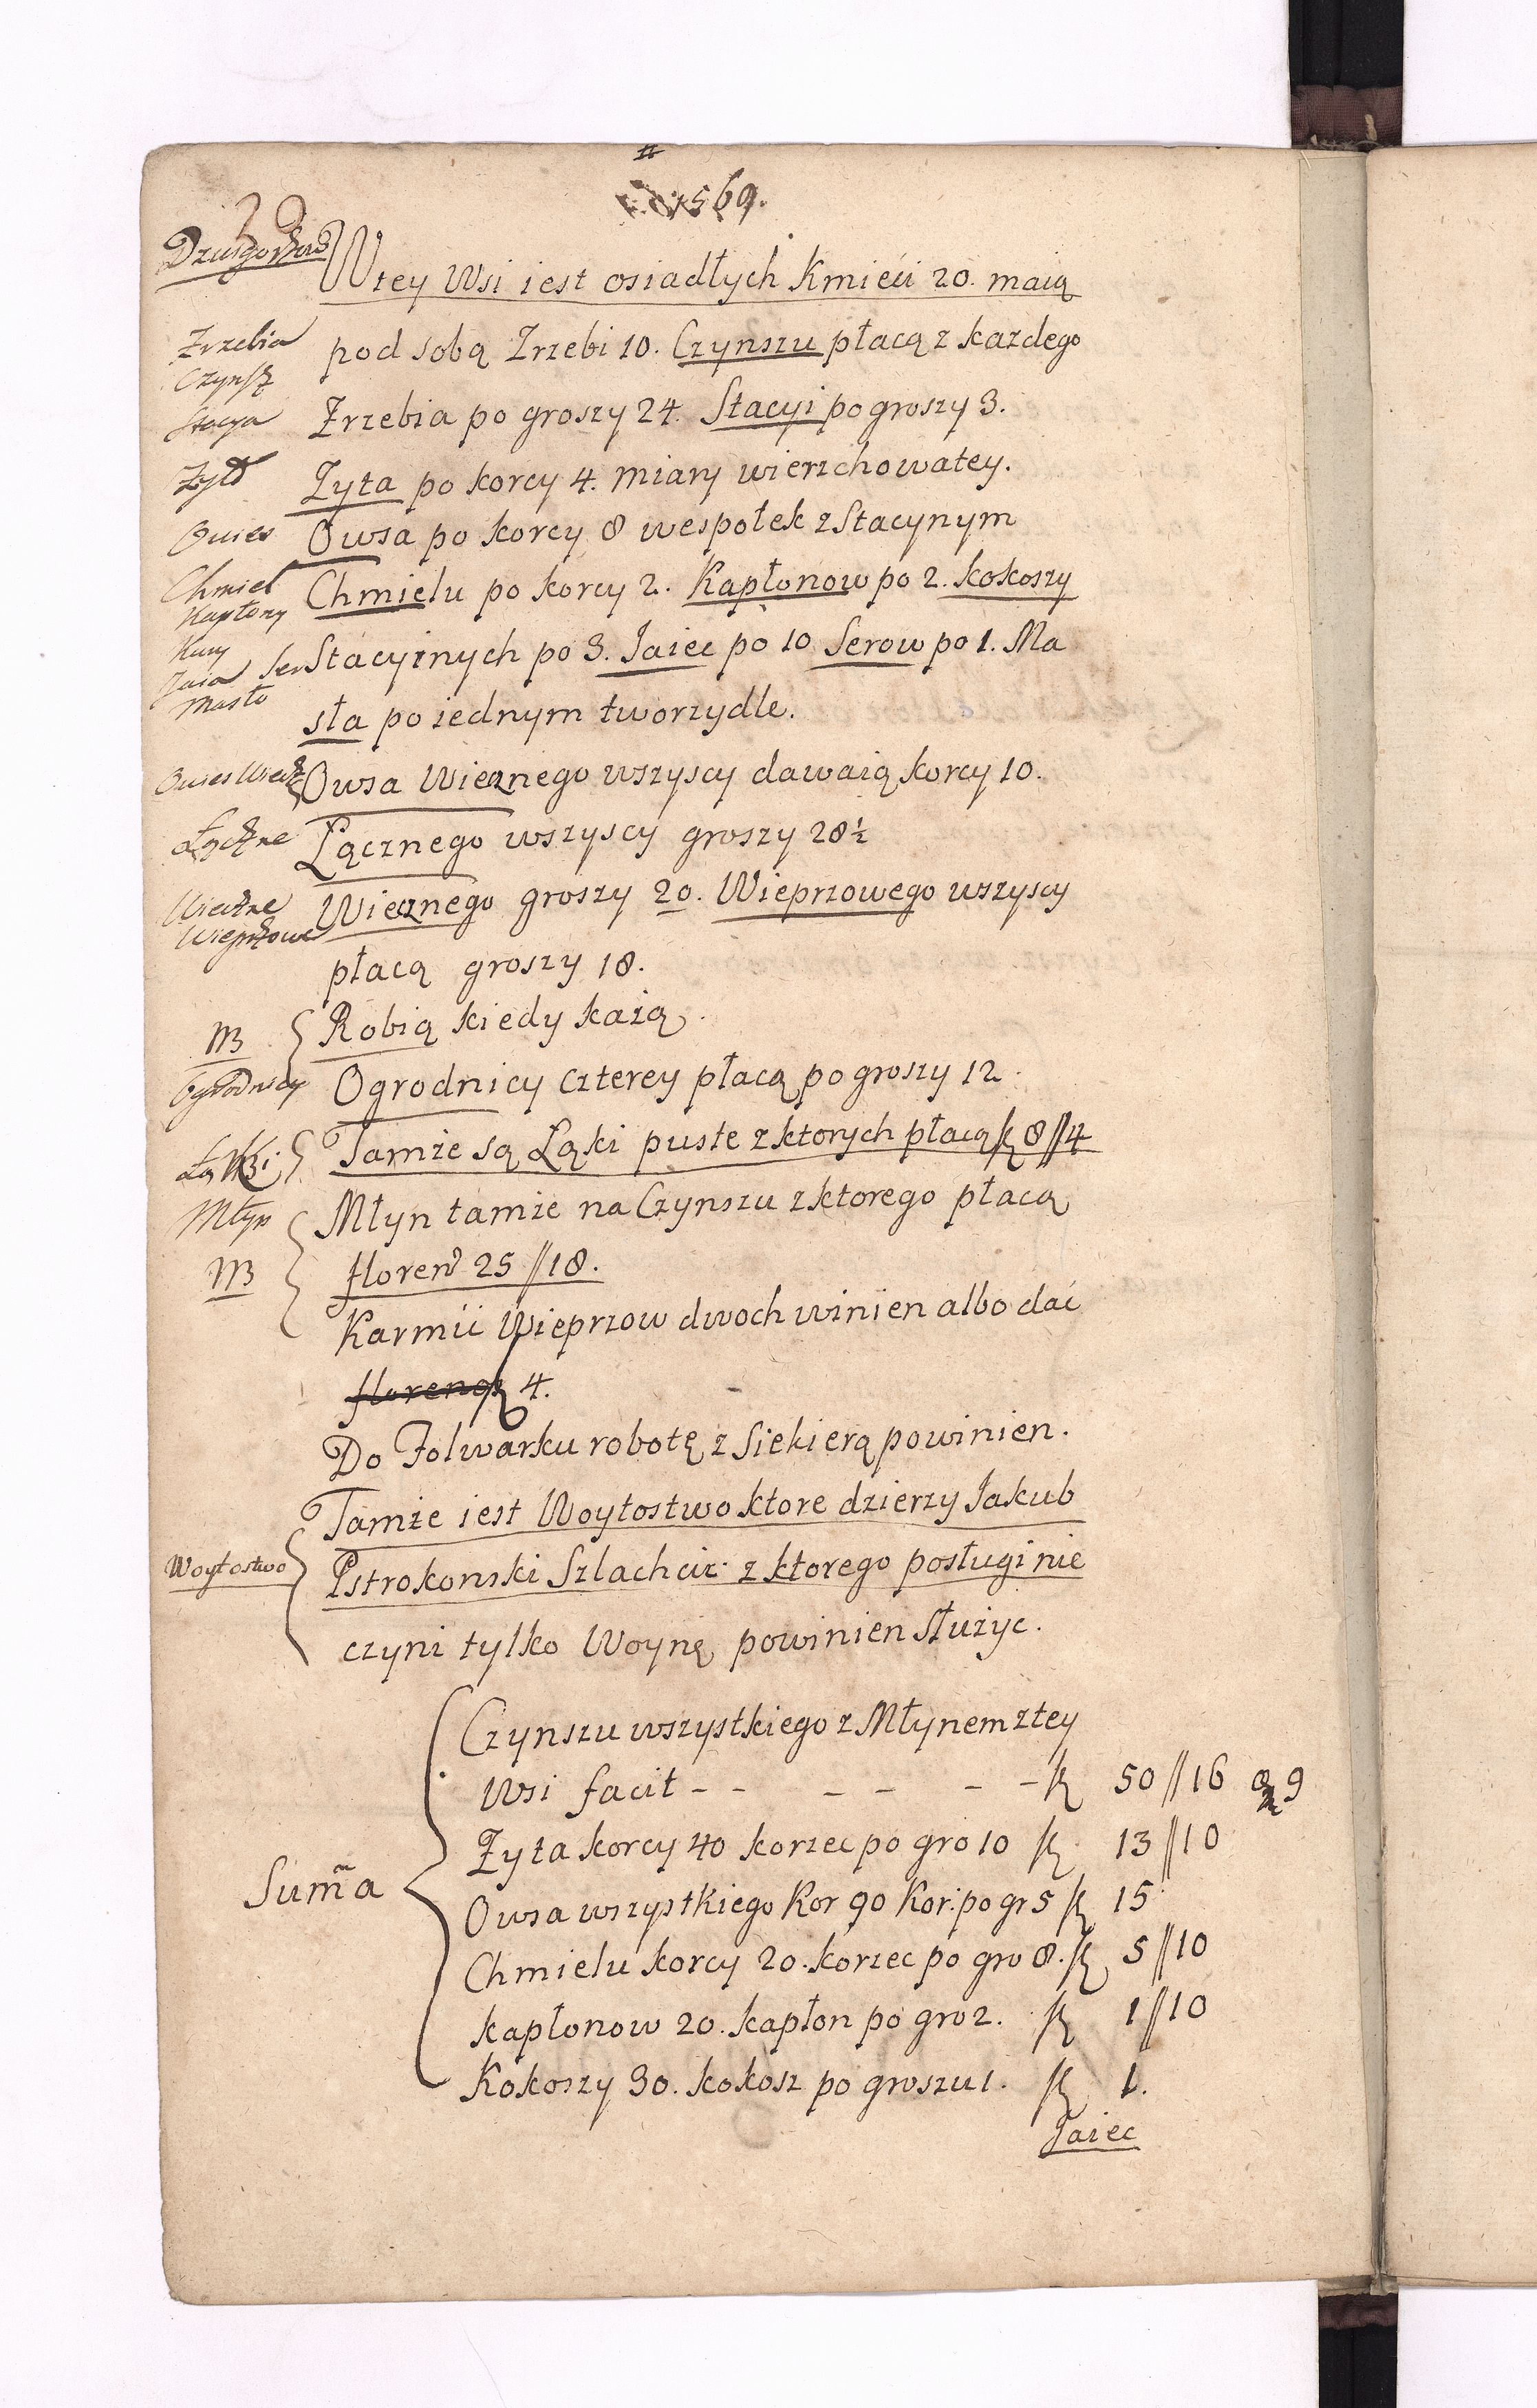 1569.
Wtey Wsi iest osiadłych Kmieci 20. maią
Zrzebia
pod sobą Zrzebi 10. Czynszu płacą z kazdego
Czynsz
Stacya
Zrzebia po groszy 24. Stacyi po groszy 3.
Zyto
Zyta po korcy 4. miary wierzchowatey.
Owies
Owsa po korcy 8 wespołek z Stacynym
Chmiel
Kapłony
Chmielu po korcy 2. Kapłonow po 2. kokoszy
Kury
Jaia Ser
Stacyinych po 3. Jaiec po 10 Serow po 1. Ma
Masło
sła po iednym tworzydle.
Owies Wiecz
Owsa Wiecznego wszyscy dawaią korcy 10.
Łączne
Łącznego wszyscy groszy 28½
Wieczne
Wieprzowe
Wiecznego groszy 20. Wieprzowego wszyscy
płacą groszy 18.
NB
Robią kiedy każą.
Ogrodnicy
Ogrodnicy czterey płacą po groszy 12.
Łąki
Tamże są Łąki puste z ktorych płacą 8//4
Młyn
Młyn tamże na Czynszu z ktorego płacą
NB
floren 25//18.
Karmić Wieprzow dwoch winien albo dać
4.
Do Folwarku robotę z Siekierą powinien.
Tamże iest Woytostwo ktore dzierzy Jakub
Woytostwo
Pstrokonski Szlachcic z ktorego posługi nie
czyni tylko Woynę powinien służyc.
Czynszu wszystkiego z Młynem z tey
Wsi facit - - - - - - 50//16 9
Zyta korcy 40 korzec po gro 10 13//10
Sum̃a
Owsa wszystkiego Kor 90 Kor: po gr 5 15
Chmielu korcy 20. korzec po gro 8. 5//10
Kapłonow 20. kapłon po gro 2. 1//10
Kokoszy 30. kokosz po groszu 1. 1.
Jaiec